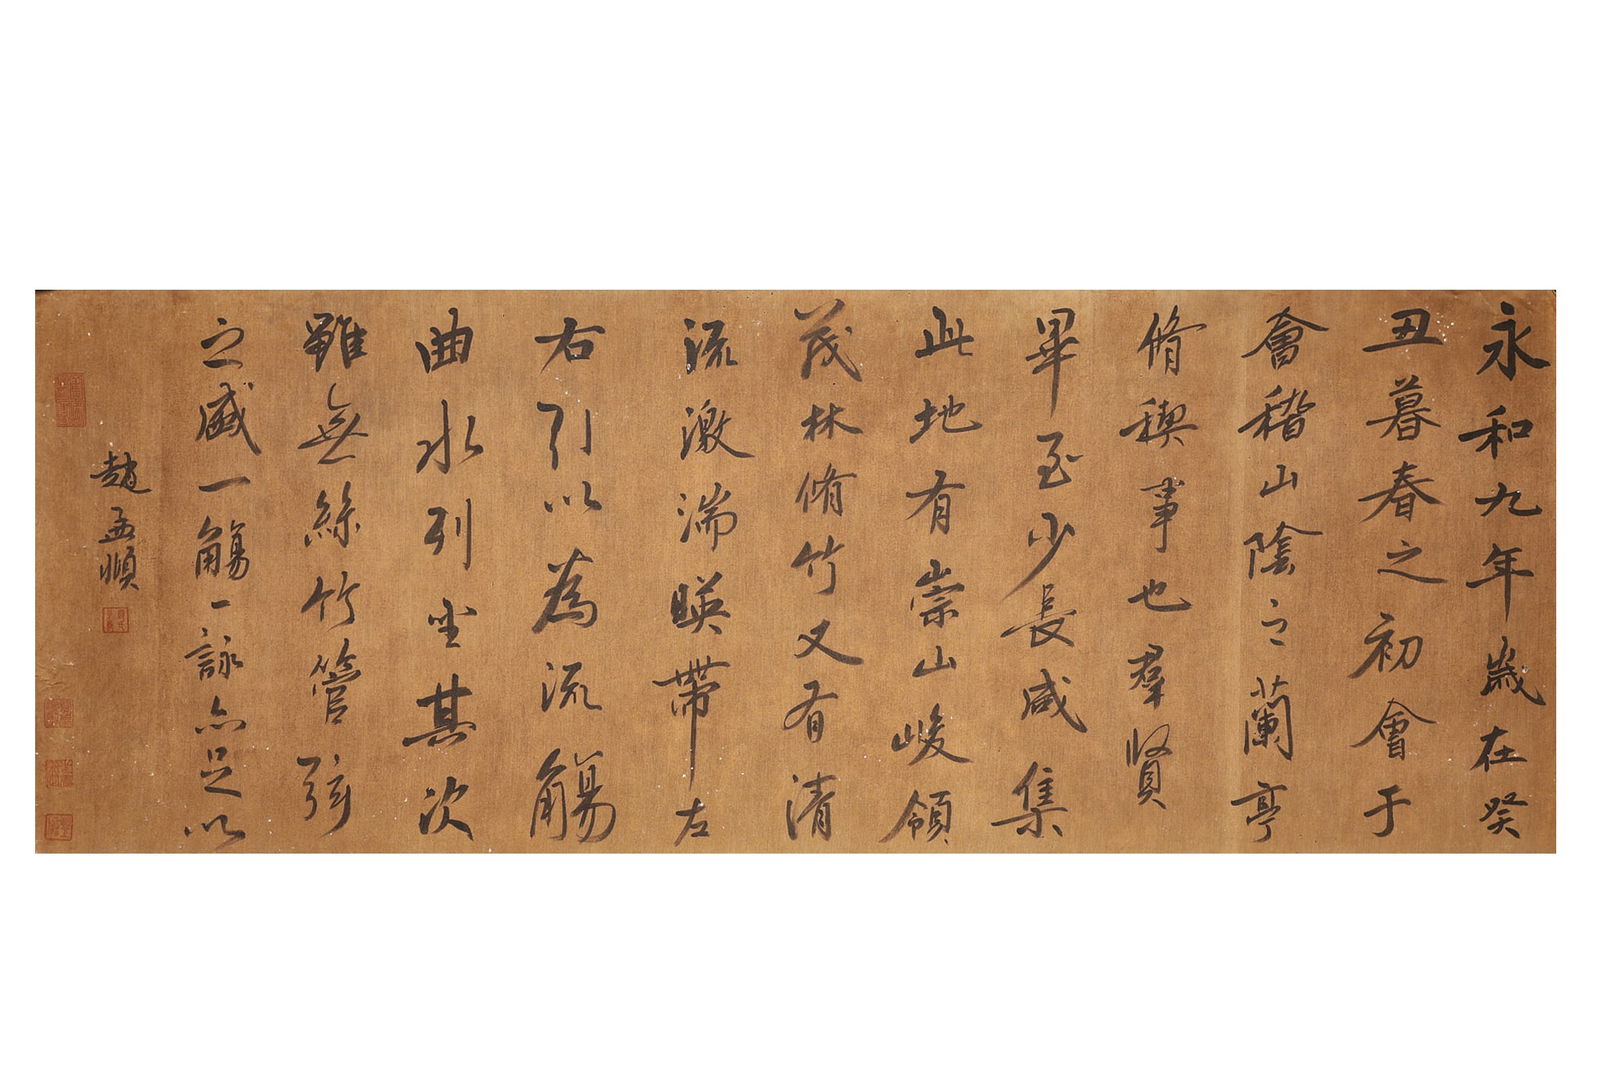 永和九年歲在癸
丑暮春之初會于
會稽山陰之蘭亭
脩稧事也羣賢
畢至少長咸集
此地有崇山峻領
茂林脩竹又有清
流激湍暎帶左
右引以為流觴
曲水列坐其次
雖無絲竹管弦
之盛一觴一詠亦足以
趙孟順